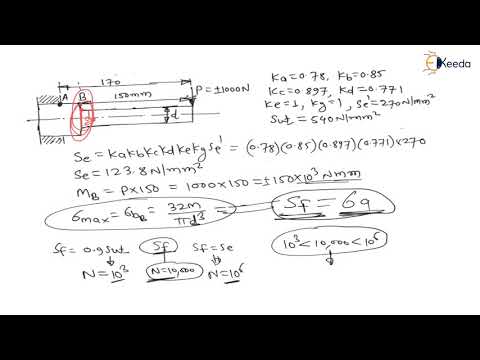 Keeda
170
A B 150mm P=±1000N
d
Ka=0.78, Kb=0.85
Kc=0.897, Kd=0.771
Ke=1, Kg=1, Se'=270N/mm²
Sut=540N/mm²
Se=KaKbKcKdKeKgSe' = (0.78)(0.85)(0.897)(0.771)×270
Se=123.8N/mm²
MB=P×150=1000×150=±150×10³Nmm
σmax=σbB=32M/πd³= Sf=σa
Sf=0.9Sut Sf Sf=Se
10³<10,000<10⁶
N=10³ N=10,000 N=10⁶